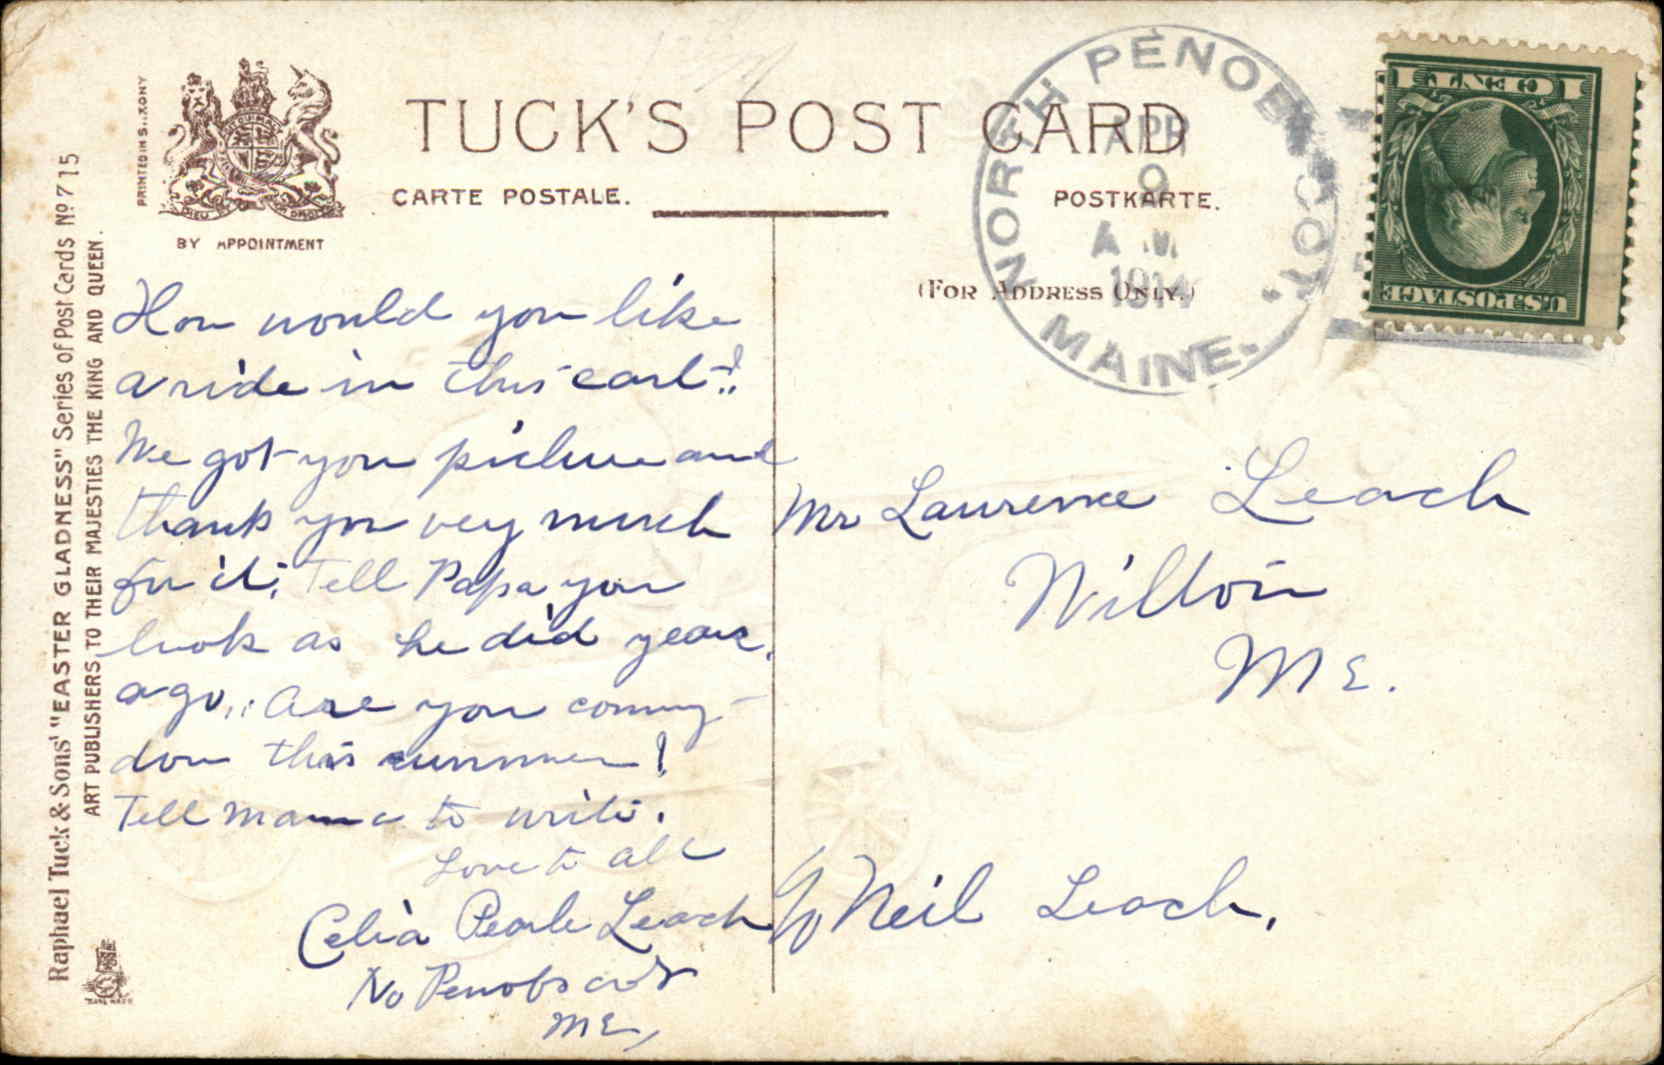 PRINTED IN SAXONY
BY APPOINTMENT
TUCK'S POST CARD
CARTE POSTALE.
POSTKARTE.
(FOR ADDRESS ONLY.)
Raphael Tuck & Sons' "EASTER GLADNESS" Series of Post Cards No 715
ART PUBLISHERS TO THEIR MAJESTIES THE KING AND QUEEN.
NORTH PENOBSCOT,
MAINE.
APR
9
A M
1914
U.S. POSTAGE
1 CENT 1
How would you like
a ride in this cart?
We got you picture and
thank you very much
for it. Tell Papa you
look as he did years
ago. Are you coming
down this summer!
Tell mama to write.
Love to all
Celia Pearle Leach
No Penobscot
ME,
Mr Laurence Leach
Wilton
ME.
c/o Neil Leach.